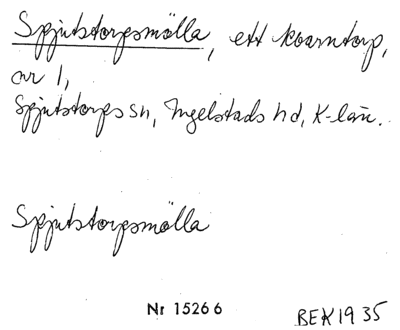 Spjutstorpsmölla, ett kvarntorp,
nr 1,
Spjutstorps sn, Ingelstads hd, K-län.
Spjutstorpsmölla
Nr 15266
BEK 1935